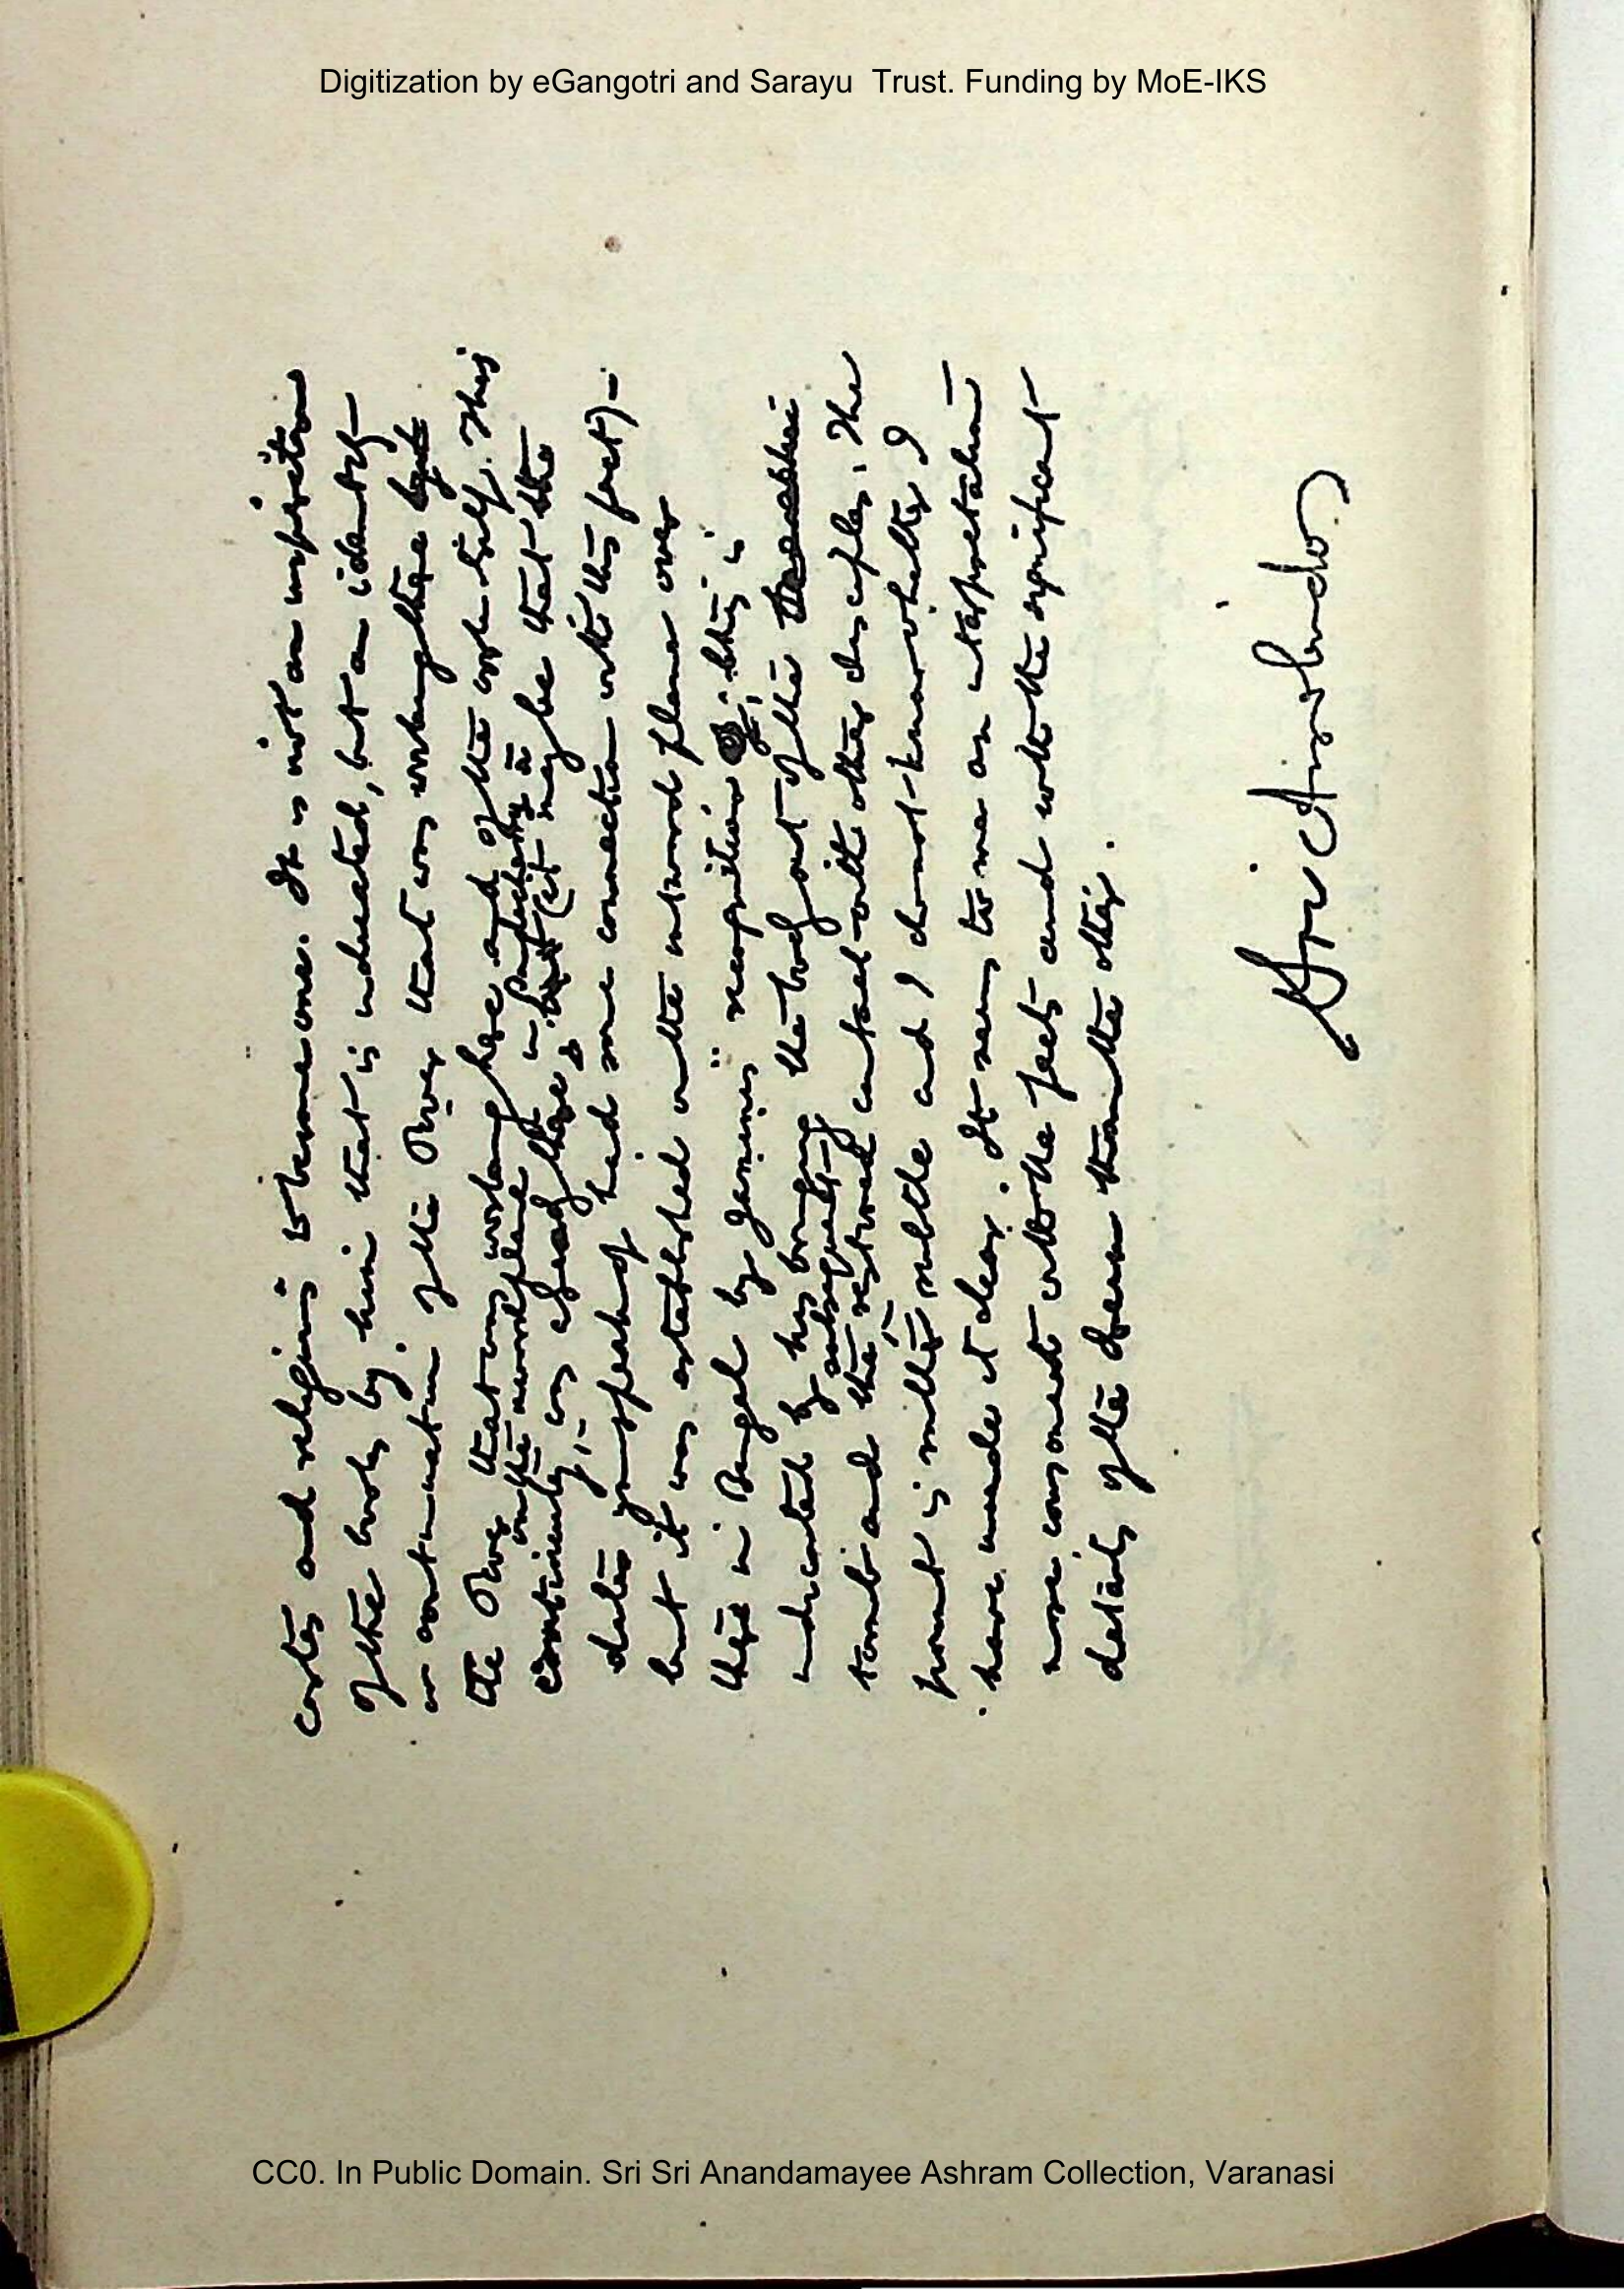 Digitization by eGangotri and Sarayu Trust. Funding by MoE-IKS
castes and religions to become one. It is not an inspiration
of the works by him that is indicated, but an identity
or continuation of the Power that was working there
the Power that was working here and of the work itself. This
on the inward plane
continuity is already there (it may be that the
dates you speak of had some connection with this fact) -
but it was established on the inward plane over
there in Bengal by genuine recognition; this is
indicated by his bringing the body out of the
subsequently
tomb and the restored contact with other disciples. The
point is rather subtle and I do not know whether I
have made it clear. It seems to me an interpretation
more consonant with the facts and with the significant
details of the dream than the other.
Sri Aurobindo
CC0. In Public Domain. Sri Sri Anandamayee Ashram Collection, Varanasi